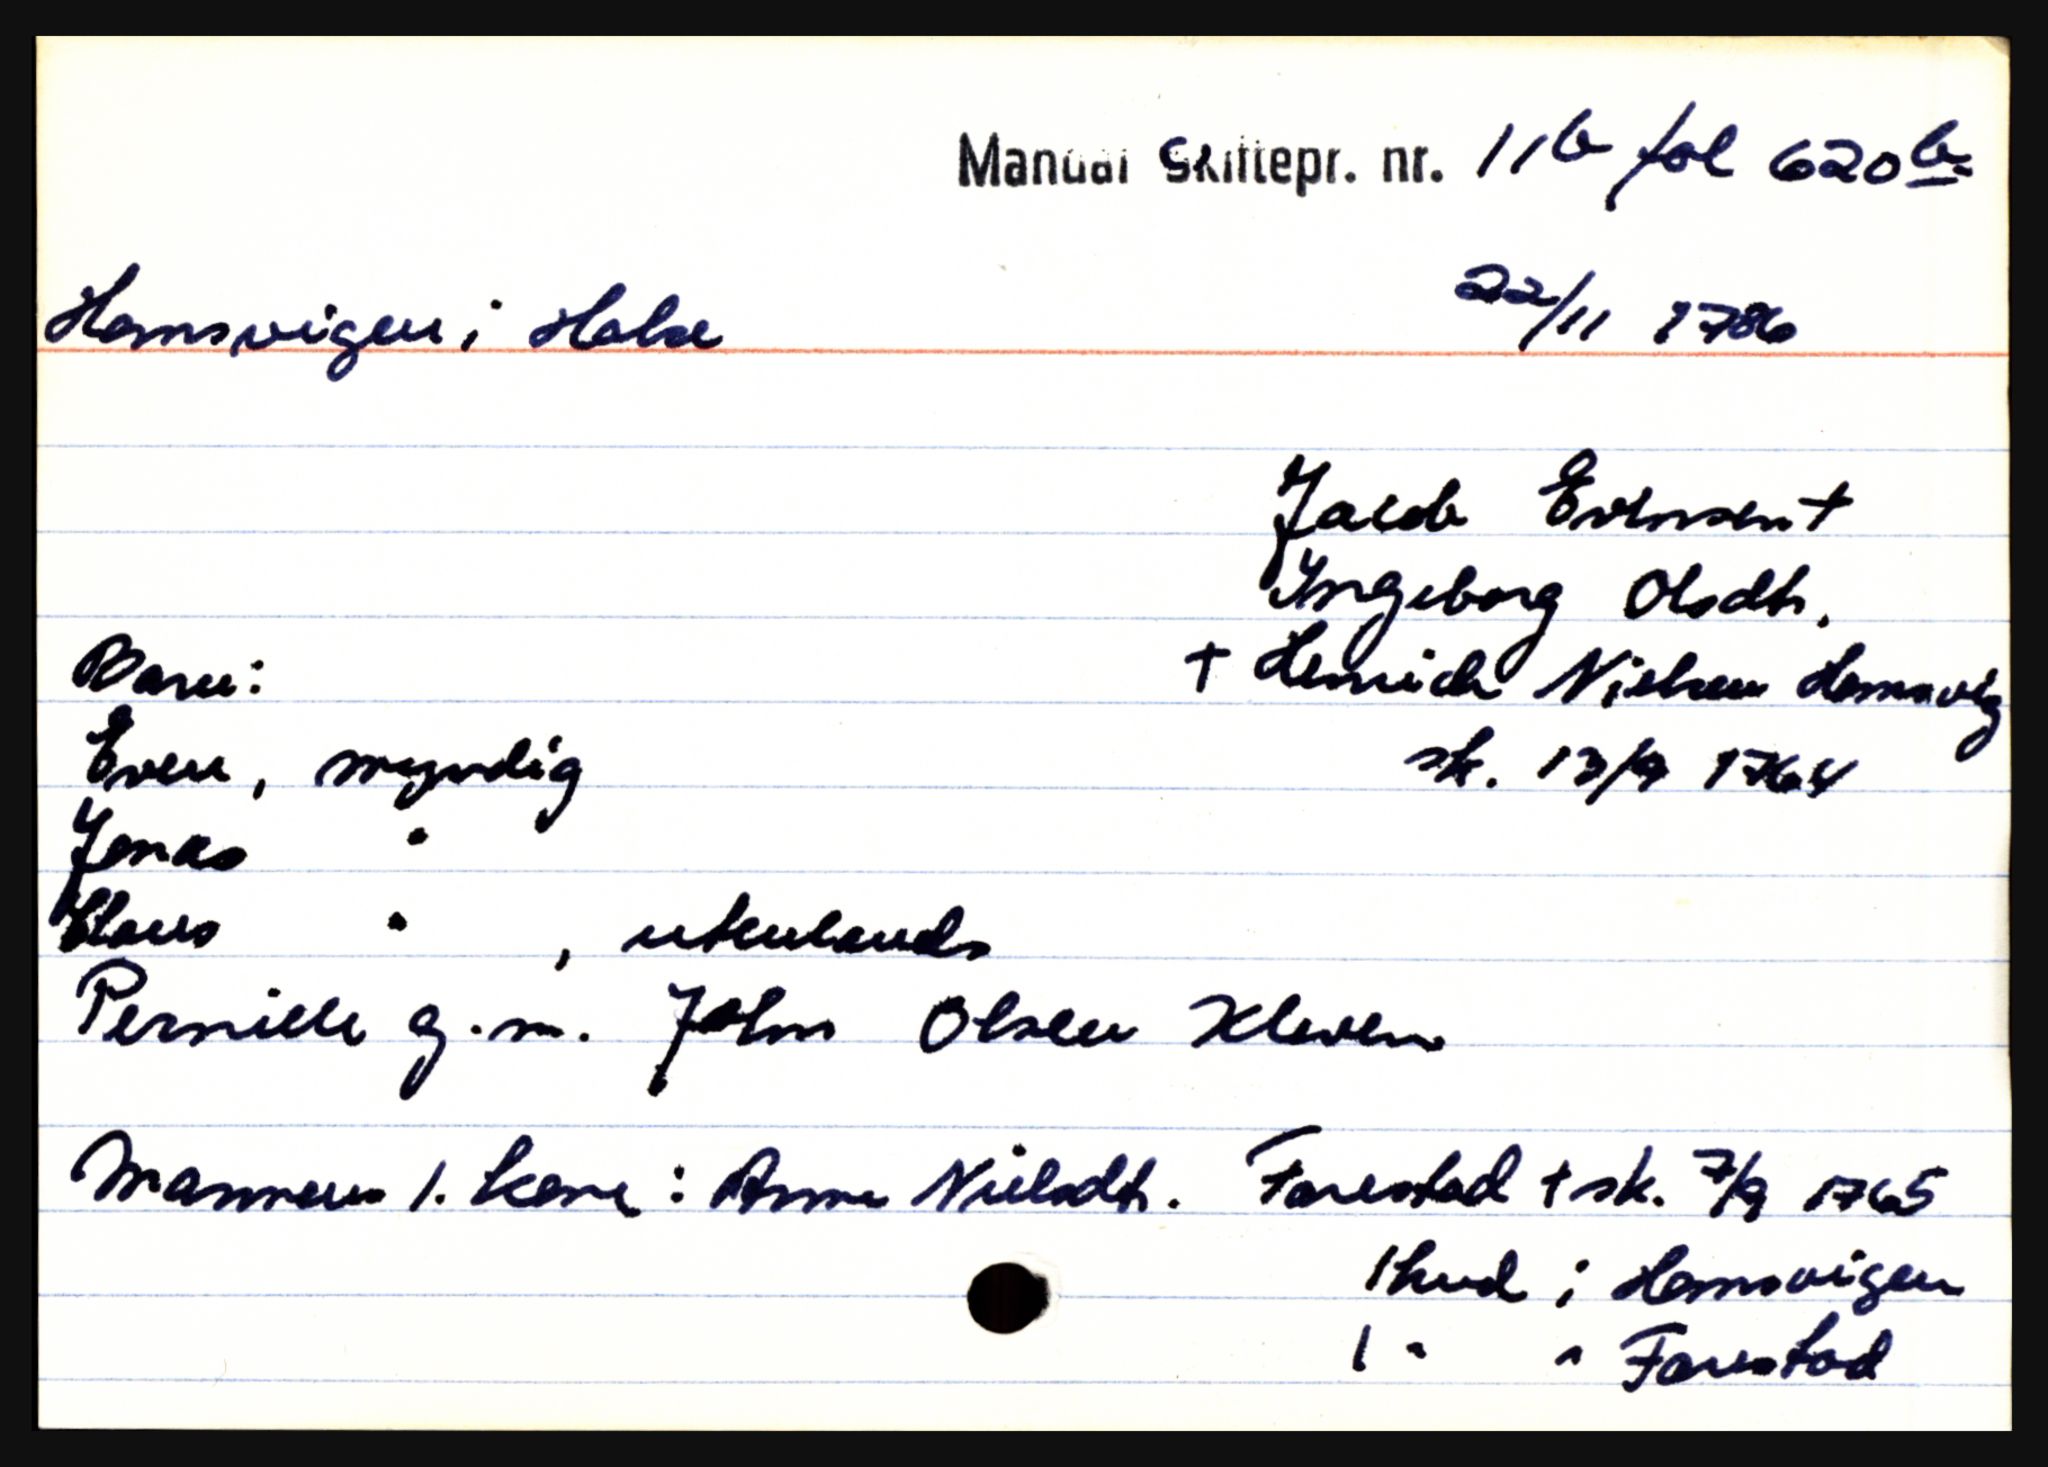 Mandal Skiftepr. nr. 11b fol 620b
Homsvigen i Halse 22/11 1786
Jacob Evensen +
Ingeborg Olsdtr.
Barn: + Henrich Nielsen Homsvig
Even, myndig sk. 13/9 1764
Jonas "
Claus " , utenlands
Pernille g.m. John Olsen Kleven
Mannens 1. kone: Anna Nielsdtr. Farestad + sk. 7/9 1765
1 hud i Homsvigen
1 " " Farestad